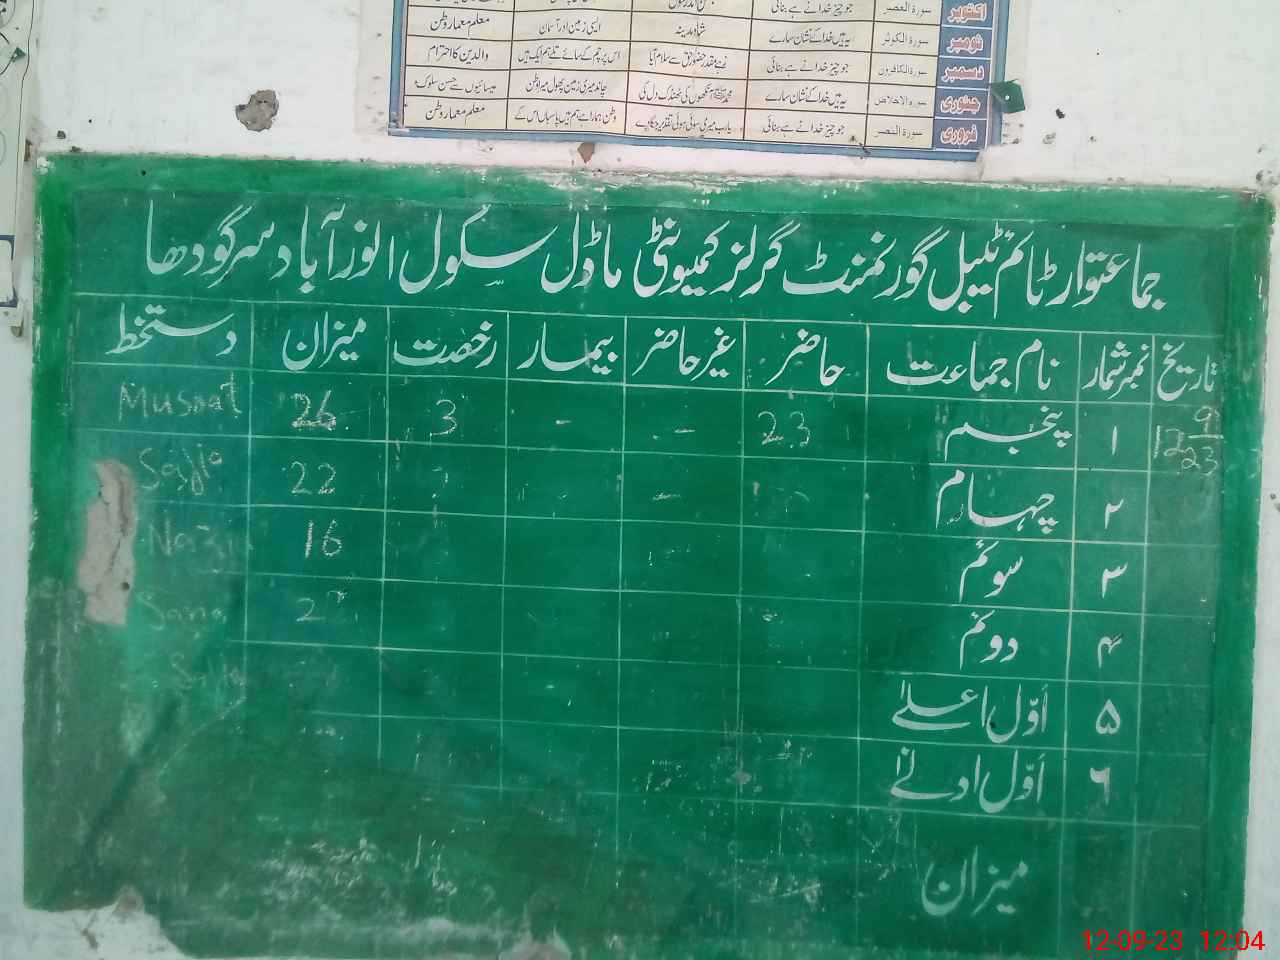 اکتوبر سورۃ العصر جو چیز خدانے ہے بنائی
نومبر سورۃ الکوثر یہ ہیں خدا کے نشان سارے شاہ مدینہ ایسی زمین اور آسمان معلم معمار وطن
دسمبر سورۃ الکافرون جو چیز خدانے ہے بنائی زہے مقدر حضور حق سے سلام آیا اس پرچم کے سائے تلے ہم ایک ہیں والدین کا احترام
جنوری سورۃ الاخلاص یہ ہیں خدا کے نشان سارے محمدﷺ آنکھوں کی ٹھنڈک دل کی چاند میری زمین پھول میرا وطن ہمسائیوں سے حسن سلوک
فروری سورۃ النصر جو چیز خدانے ہے بنائی یارب میری سوئی ہوئی تقدیر جگا دے وطن ہمارا ہے ہم ہیں پاسباں اس کے معلم معمار وطن
جماعتوار ٹائم ٹیبل گورنمنٹ گرلز کمیونٹی ماڈل سکول انور آباد سرگودھا
تاریخ نمبر شمار نام جماعت حاضر غیر حاضر بیمار رخصت میزان دستخط
12 9/23 ۱ پنجم 23 - - 3 26 Musrat
۲ چہارم 22
۳ سوئم 16
۴ دوئم
۵ اوّل اعلےٰ
۶ اوّل ادنےٰ
میزان
12-09-23 12:04